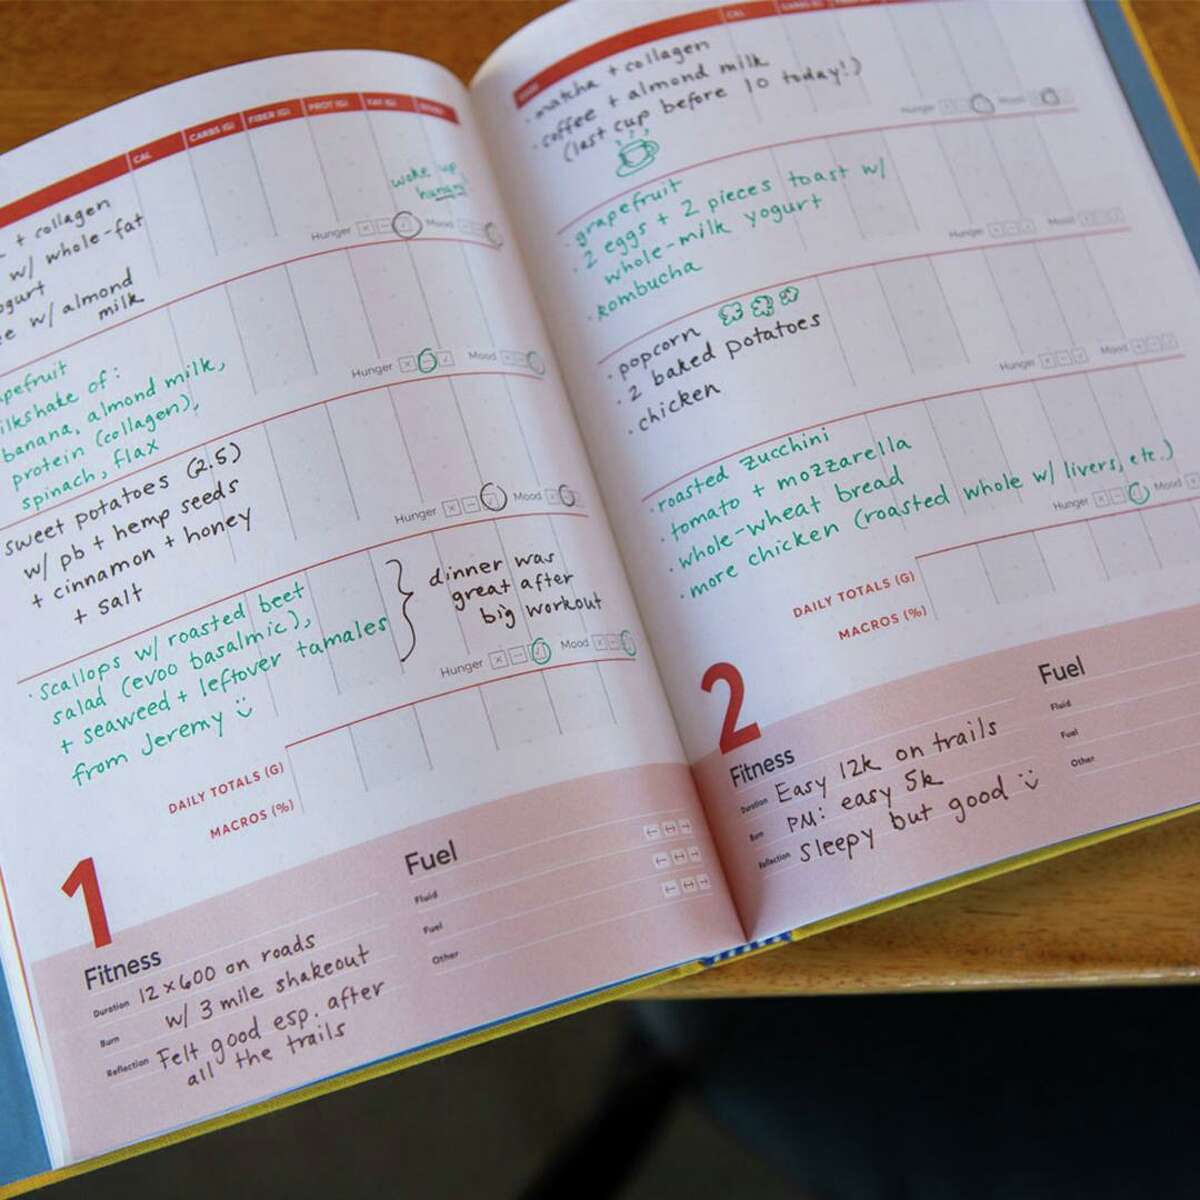 CAL CARBS (G) FIBER (G) PROT (G) FAT (G)
woke up
hungry!
+ collagen
w/ whole-fat
ogurt
ee w/ almond
milk
Hunger Mood
apefruit
ilkshake of:
banana, almond milk,
protein (collagen),
spinach, flax
Hunger Mood
sweet potatoes (2.5)
w/ pb + hemp seeds
+ cinnamon + honey
+ salt
Hunger Mood
• scallops w/ roasted beet
salad (evoo basalmic),
+ seaweed + leftover tamales
from Jeremy
dinner was
great after
big workout
Hunger Mood
DAILY TOTALS (G)
MACROS (%)
1
Fitness
Duration 12x600 on roads
Burn w/ 3 mile shakeout
Reflection Felt good esp. after
all the trails
Fuel
Fluid
Fuel
Other
CAL CARBS (G)
• matcha + collagen
• coffee + almond milk
(last cup before 10 today!)
Hunger Mood
• grapefruit
• 2 eggs + 2 pieces toast w/
whole-milk yogurt
• kombucha
Hunger Mood
• popcorn
• 2 baked potatoes
• chicken
Hunger Mood
• roasted zucchini
• tomato + mozzarella
• whole-wheat bread
• more chicken (roasted whole w/ livers, etc.)
Hunger Mood
DAILY TOTALS (G)
MACROS (%)
2
Fitness
Duration Easy 12k on trails
Burn PM: easy 5k
Reflection sleepy but good
Fuel
Fluid
Fuel
Other